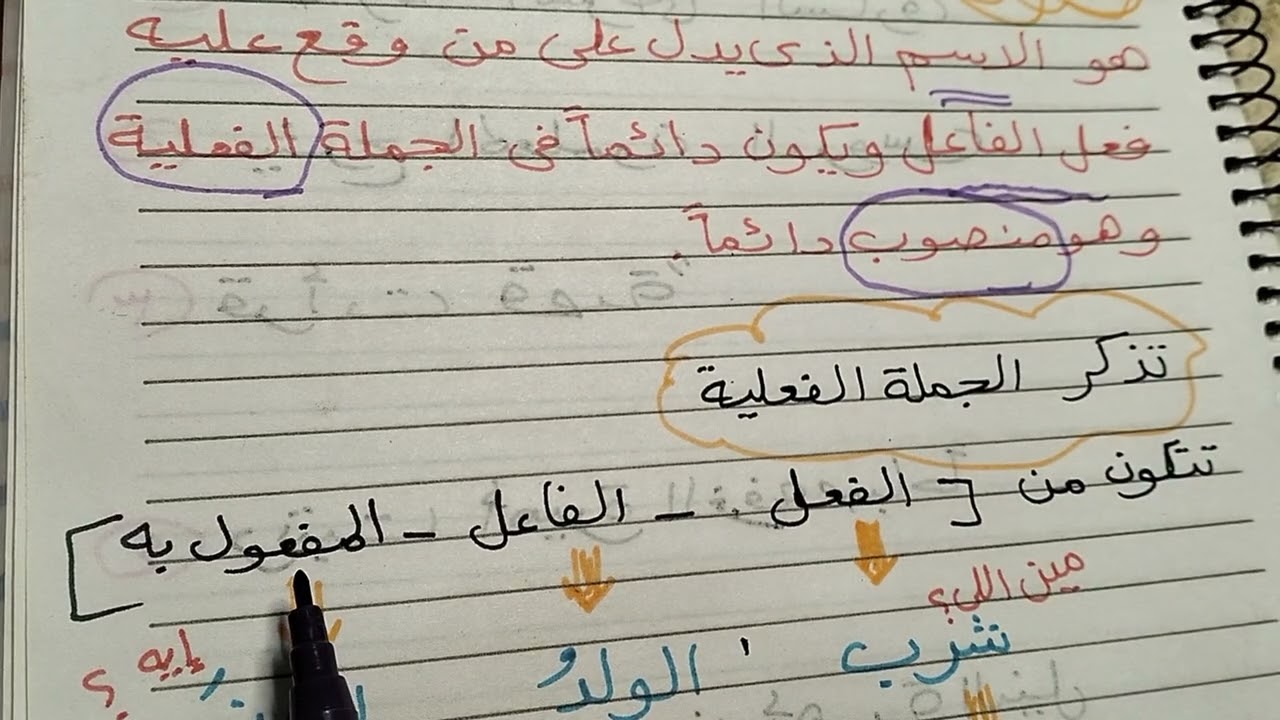 هو الاسم الذى يدل على من وقع عليه
فعل الفاعل ويكون دائماً فى الجملة الفعلية
وهو منصوب دائماً.
تذكر الجملة الفعلية
تتكون من [الفعل - الفاعل - المفعول به]
مين اللى؟
إيه؟
شرب الولدُ